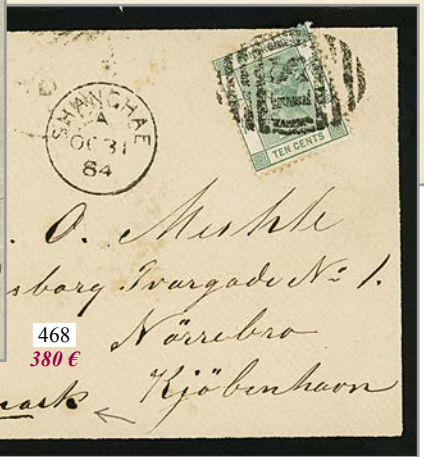 SHANGHAE
A
OC 31
84
TEN CENTS
. O. Muhle
sborg Tvargade No 1.
Nörrebro
Kjöbenhavn
mark
468
380 €